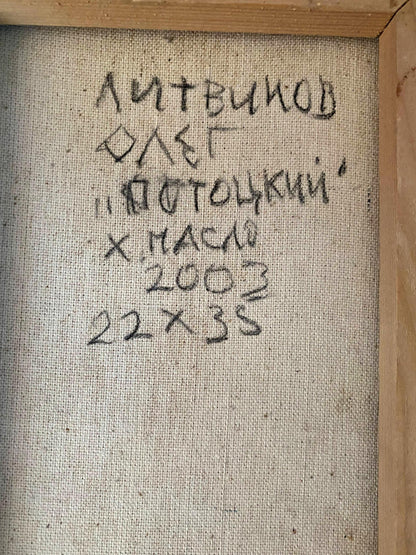 ЛИТВИНОВ
ОЛЕГ
„ПОТОЦКИЙ"
Х. МАСЛО
2003
22х35